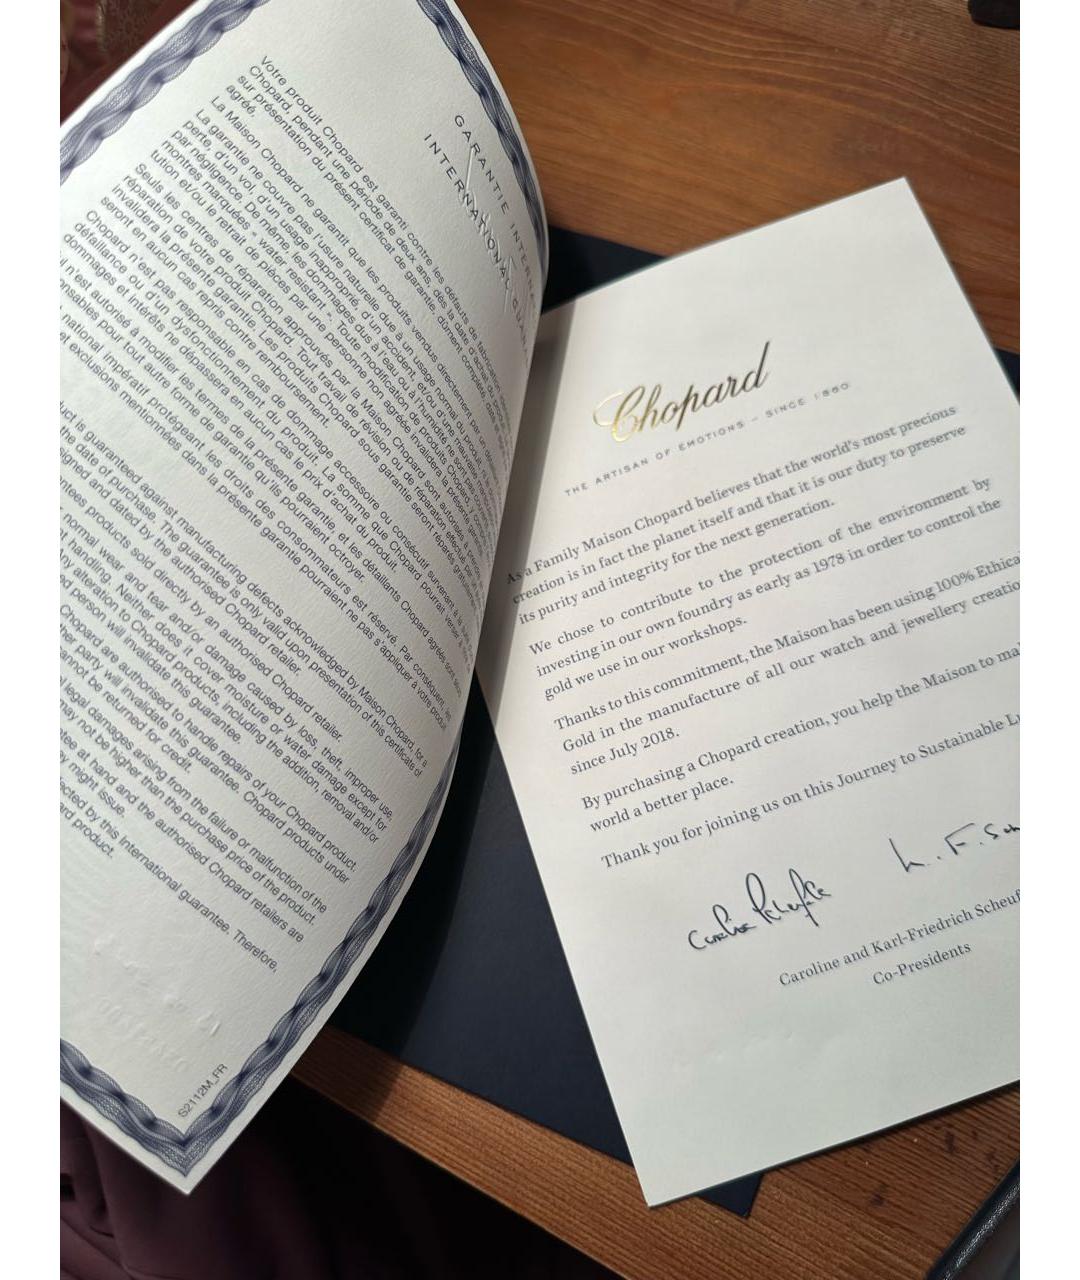 GARANTIE INTERN
INTERNATIONAL GUARA
Votre produit Chopard est garanti contre les défauts de fabrication
Chopard, pendant une période de deux ans, dès la date d'achat du
sur présentation du présent certificat de garantie, dûment complété, daté
agréé.
La Maison Chopard ne garantit que les produits vendus directement par un
La garantie ne couvre pas l'usure naturelle due à un usage normal du produit
perte, d'un vol, d'un usage inapproprié, d'un accident, et/ou d'une mauvaise
par négligence. De même les dommages dus à l'eau ou à l'humidité ne sont pas
montres marquées " water resistant ". Toute modification de produits Chopard, y compris
tution et/ou le retrait de pièces par une personne non agréée invalidera la présente garantie
Seuls les centres de réparation approuvés par la Maison Chopard sont autorisés à
réparation de votre produit Chopard. Tout travail de révision ou de réparation effectué par
invalidera la présente garantie. Les produits Chopard sous garantie seront réparés gratuitement
seront en aucun cas repris contre remboursement.
Chopard n'est pas responsable en cas de dommage accessoire ou consécutif survenant à la suite
défaillance ou d'un dysfonctionnement du produit. La somme que Chopard pourrait verser à titre
dommages et intérêts ne dépassera en aucun cas le prix d'achat du produit
n'est autorisé à modifier les termes de la présente garantie et les détaillants Chopard agréés sont seuls
onsables pour tout autre forme de garantie qu'ils pourraient octroyer.
national impératif protégeant les droits des consommateurs est réservé. Par conséquent, les
et exclusions mentionnées dans la présente garantie pourraient ne pas s'appliquer à votre produit
uct is guaranteed against manufacturing defects acknowledged by Maison Chopard, for a
the date of purchase. The guarantee is only valid upon presentation of this certificate of
signed and dated by the authorised Chopard retailer.
antees products sold directly by an authorised Chopard retailer.
normal wear and tear and/or damage caused by loss, theft, improper use,
nt handling. Neither does it cover moisture or water damage except for
Any alteration to Chopard products, including the addition, removal and/or
ed person will invalidate this guarantee
Chopard are authorised to handle repairs of your Chopard product.
her party will invalidate this guarantee. Chopard products under
annot be returned for credit.
legal damages arising from the failure or malfunction of the
may not be higher than the purchase price of the product.
at hand and the authorised Chopard retailers are
y might issue.
cted by this International guarantee. Therefore,
ard product.
S2112M_FR
Chopard
THE ARTISAN OF EMOTIONS – SINCE 1860
As a Family Maison Chopard believes that the world's most precious
creation is in fact the planet itself and that it is our duty to preserve
its purity and integrity for the next generation.
We chose to contribute to the protection of the environment by
investing in our own foundry as early as 1978 in order to control the
gold we use in our workshops.
Thanks to this commitment, the Maison has been using 100% Ethica
Gold in the manufacture of all our watch and jewellery creatio
since July 2018.
By purchasing a Chopard creation, you help the Maison to ma
world a better place.
Thank you for joining us on this Journey to Sustainable Lu
Caroline and Karl-Friedrich Scheuf
Co-Presidents